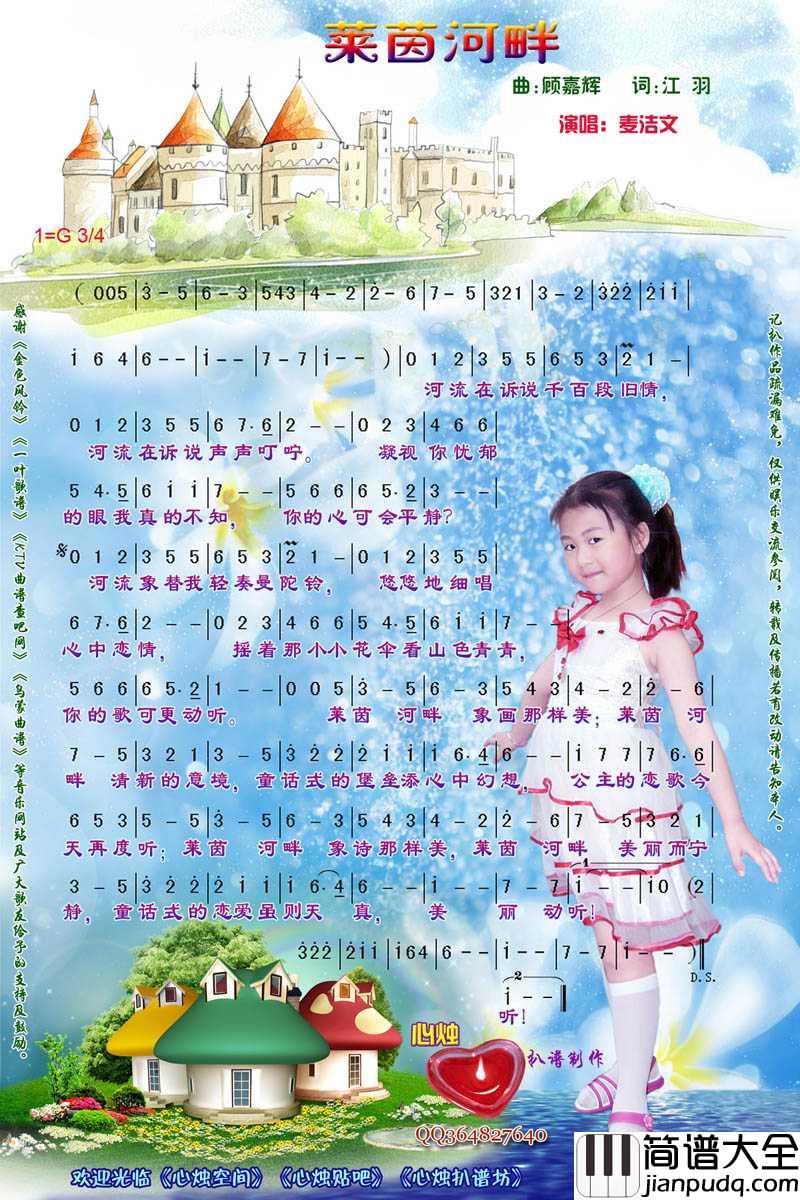 莱茵河畔
曲:顾嘉辉 词:江 羽
演唱: 麦洁文
1=G 3/4
( 0 0 5 | 3 - 5 | 6 - 3 | 5 4 3 | 4 - 2 | 2 - 6 | 7 - 5 | 3 2 1 | 3 - 2 | 3 2 2 | 2 1 1 |
1 6 4 | 6 - - | 1 - - | 7 - 7 | 1 - - ) | 0 1 2 | 3 5 5 | 6 5 3 | 2 1 - |
河流在诉说千百段旧情,
0 1 2 | 3 5 5 | 6 7. 6 | 2 - - | 0 2 3 | 4 6 6 |
河流在诉说声声叮咛。 凝视你忧郁
5 4. 5 | 6 1 1 | 7 - - | 5 6 6 | 6 5. 2 | 3 - - |
的眼我真的不知, 你的心可会平静?
0 1 2 | 3 5 5 | 6 5 3 | 2 1 - | 0 1 2 | 3 5 5 |
河流象替我轻奏曼陀铃, 悠悠地细唱
6 7. 6 | 2 - - | 0 2 3 | 4 6 6 | 5 4. 5 | 6 1 1 | 7 - - |
心中恋情, 摇着那小小花伞看山色青青,
5 6 6 | 6 5. 2 | 1 - - | 0 0 5 | 3 - 5 | 6 - 3 | 5 4 3 | 4 - 2 | 2 - 6 |
你的歌可更动听。 莱茵 河畔 象画那样美; 莱茵 河
7 - 5 | 3 2 1 | 3 - 5 | 3 2 2 | 2 1 1 | 1 6. 4 | 6 - - | 1 7 7 | 7 6. 6 |
畔 清新的意境, 童话式的堡垒添心中幻想, 公主的恋歌今
6 5 3 | 5 - 5 | 3 - 5 | 6 - 3 | 5 4 3 | 4 - 2 | 2 - 6 | 7 - 5 | 3 2 1 |
天再度听; 莱茵 河畔 象诗那样美, 莱茵 河畔 美丽而宁
3 - 5 | 3 2 2 | 2 1 1 | 1 6. 4 | 6 - - | 1 - - | 7 - 7 | 1 - - | 1 0 (2 |
静, 童话式的恋爱虽则天 真, 美 丽 动听!
3 2 2 | 2 1 1 | 1 6 4 | 6 - - | 1 - - | 7 - 7 | 1 - - ) ‖
D.S.
2
1 - - ‖
听!
心烛
扒谱制作
QQ364827640
欢迎光临《心烛空间》《心烛贴吧》《心烛扒谱坊》
感谢《金色风铃》《一叶歌谱》《KTV曲谱查吧网》《乌蒙曲谱》等音乐网站及广大歌友给予的支持及鼓励。
记扒作品疏漏难免,仅供娱乐交流参阅,转载及传播若有改动请告知本人。
简谱大全
jianpudq.com